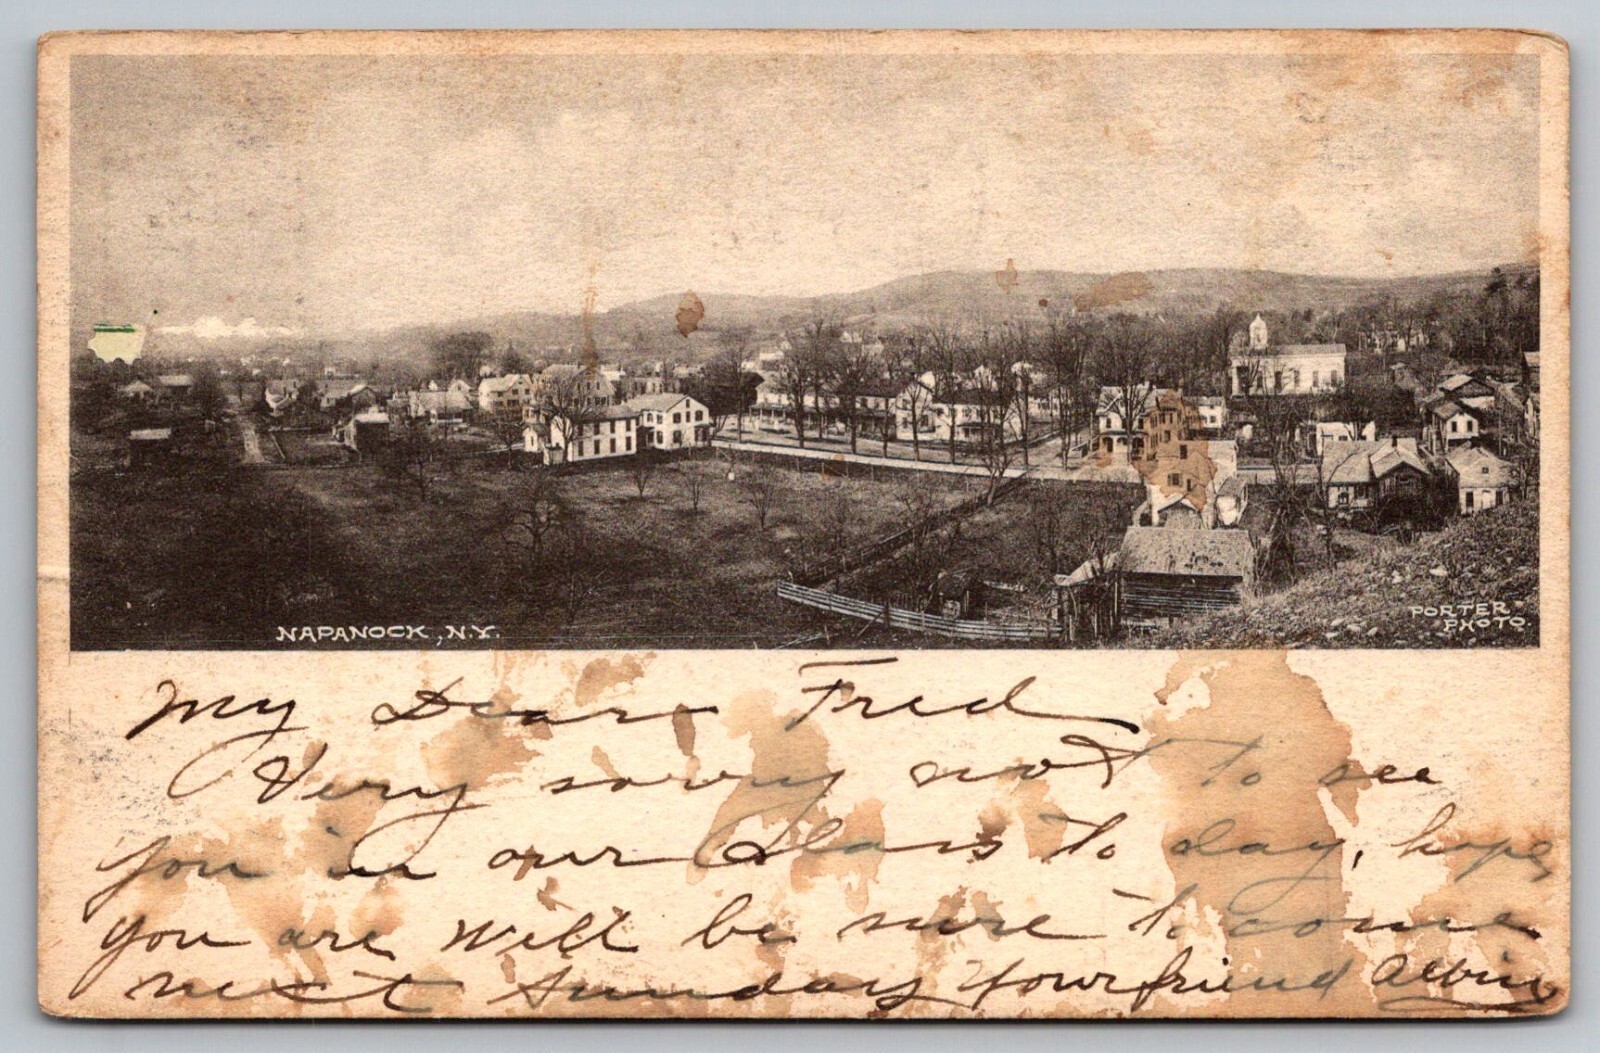 NAPANOCK, N.Y.
PORTER
PHOTO.
My Dear Fred
Very sorry not to see
you in our Class to day, hope
you are well be sure to come
next Sunday Your friend